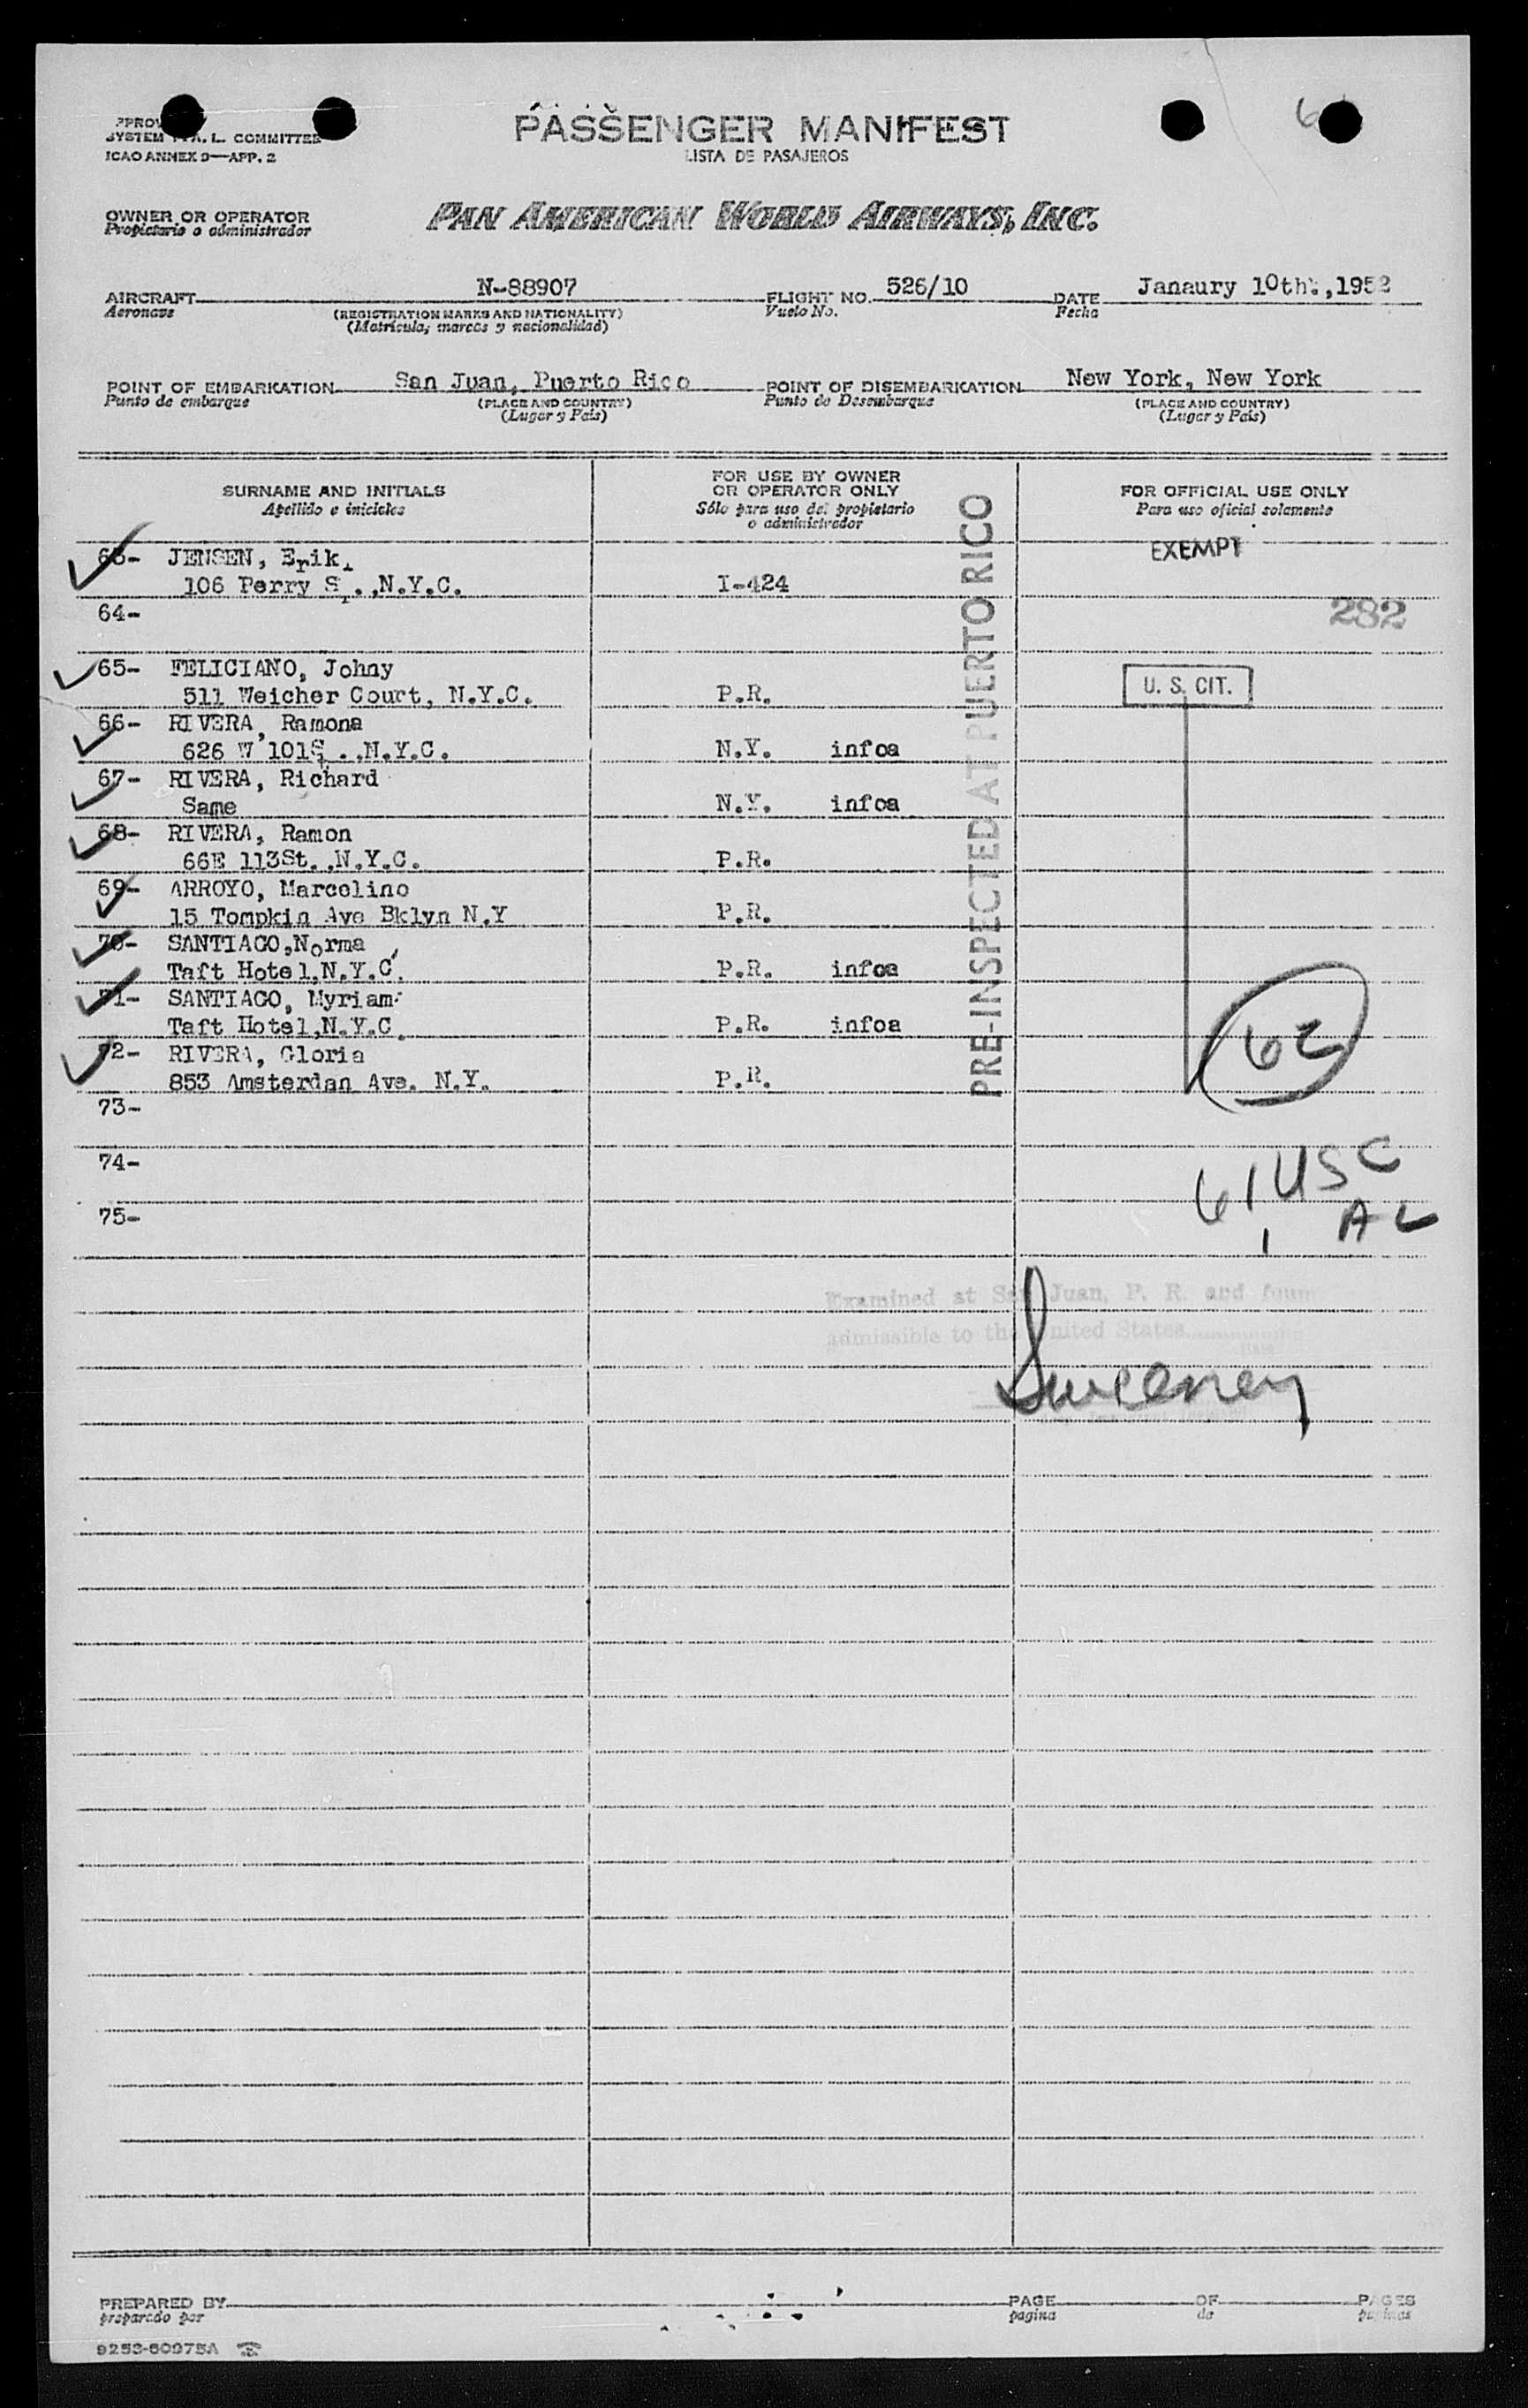 PASSENGER MANIFEST
LISTA DE PASAJEROS
SYSTEM A. L. COMMITTEE
ICAO ANNEX 9—APP. 2
OWNER OR OPERATOR
Propietario o administrador
PAN AMERICAN WORLD AIRWAYS, INC.
AIRCRAFT N-88907 FLIGHT NO. 526/10 DATE Janaury 10th:,1952
Aeronave (REGISTRATION MARKS AND NATIONALITY) Vuelo No. Fecha
(Matrícula, marcas y nacionalidad)
POINT OF EMBARKATION San Juan, Puerto Rico POINT OF DISEMBARKATION New York, New York
Punto de embarque (PLACE AND COUNTRY) Punto de Desembarque (PLACE AND COUNTRY)
(Lugar y País) (Lugar y País)
SURNAME AND INITIALS
Apellido e iniciales
FOR USE BY OWNER
OR OPERATOR ONLY
Sólo para uso del propietario
o administrador
FOR OFFICIAL USE ONLY
Para uso oficial solamente
PRE-INSPECTED AT PUERTO RICO
63- JENSEN, Erik. EXEMPT
106 Perry S .,N.Y.C. I-424
64- 282
65- FELICIANO, Johny
511 Weicher Court, N.Y.C. P.R. U. S. CIT.
66- RIVERA, Ramona
626 W 101S .,N.Y.C. N.Y. infoa
67- RIVERA, Richard
Same N.Y. infoa
68- RIVERA, Ramon
66E 113St.,N.Y.C. P.R.
69- ARROYO, Marcelino
15 Tompkin Ave Bklyn N.Y P.R.
70- SANTIAGO,Norma
Taft Hotel,N.Y.C. P.R. infoa
71- SANTIAGO, Myriam
Taft Hotel,N.Y.C. P.R. infoa
72- RIVERA, Gloria 62
853 Amsterdan Ave. N.Y. P.R.
73-
74- 61 USC
75- 1 AL
Examined at San Juan, P. R. and foun
admissible to the United States
Sweeney
PREPARED BY PAGE OF PAGES
preparado por pagina de paginas
9253-60975A